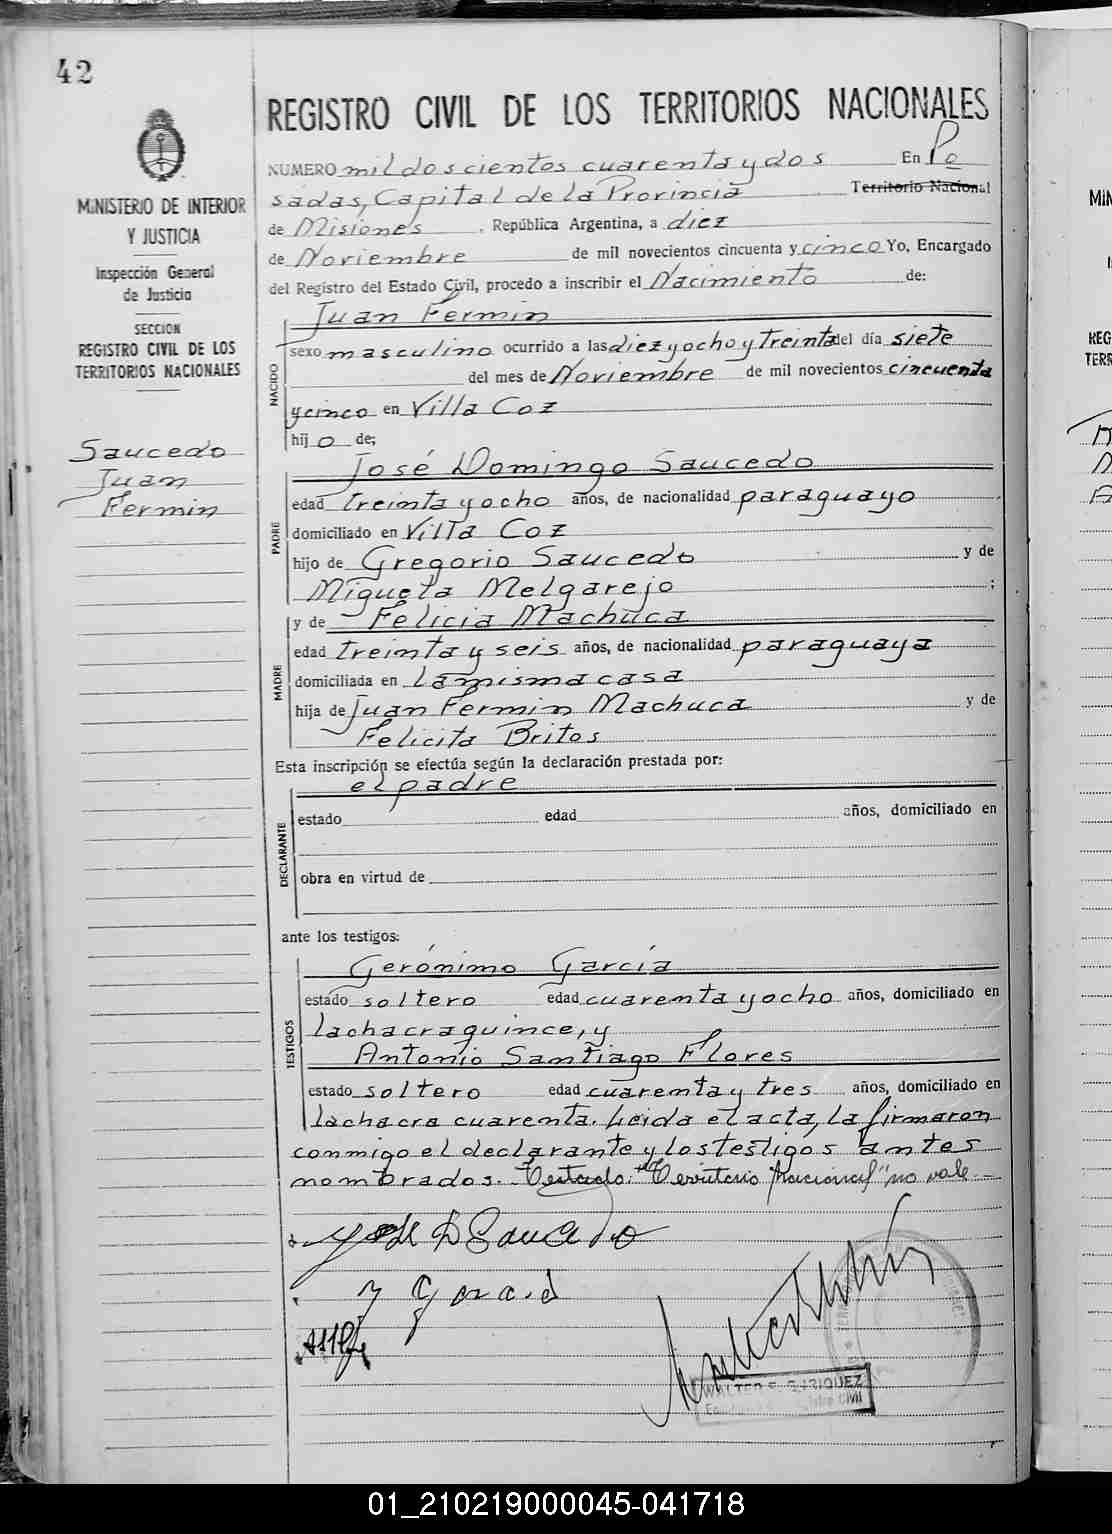 42
REGISTRO CIVIL DE LOS TERRITORIOS NACIONALES
MINISTERIO DE INTERIOR
Y JUSTICIA
Inspección General
de Justicia
SECCION
REGISTRO CIVIL DE LOS
TERRITORIOS NACIONALES
Saucedo
Juan
Fermin
NUMERO mil doscientos cuarenta y dos En Po
sadas, Capital de la Provincia Territorio Nacional
de Misiones, República Argentina, a diez
de Noviembre de mil novecientos cincuenta y cinco Yo, Encargado
del Registro del Estado Civil, procedo a inscribir el Nacimiento de:
NACIDO
Juan Fermin
sexo masculino ocurrido a las diez y ocho y treinta del día siete
del mes de Noviembre de mil novecientos cincuenta
y cinco en Villa Coz
hijo de;
PADRE
José Domingo Saucedo
edad treinta y ocho años, de nacionalidad paraguayo
domiciliado en Villa Coz
hijo de Gregorio Saucedo y de
Miguela Melgarejo;
MADRE
y de Felicia Machuca
edad treinta y seis años, de nacionalidad paraguaya
domiciliada en la misma casa
hija de Juan Fermin Machuca y de
Felicita Britos
Esta inscripción se efectúa según la declaración prestada por:
DECLARANTE
el padre
estado edad años, domiciliado en
obra en virtud de
ante los testigos:
TESTIGOS
Gerónimo García
estado soltero edad cuarenta y ocho años, domiciliado en
la chacra quince, y
Antonio Santiago Flores
estado soltero edad cuarenta y tres años, domiciliado en
la chacra cuarenta. Leida el acta, la firmaron
conmigo el declarante y los testigos antes
nombrados. Testado: "Territorio Nacional" no vale
José D Saucedo
WALTER E.
CIVIL
01_210219000045-041718